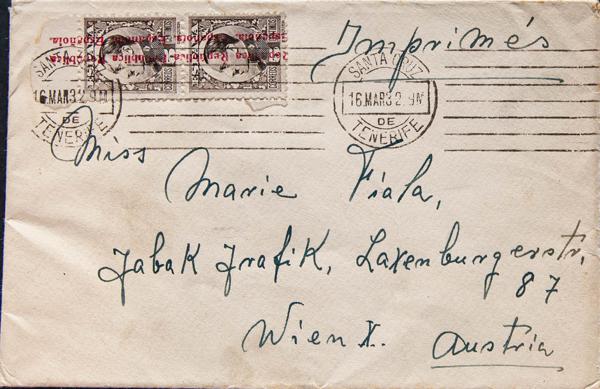 Imprimés
República Española. República Española.
SANTA CRUZ
16 MAR 32. 9M
DE
TENERIFE
SANTA CRUZ
16 MAR 32. 9M
DE
TENERIFE
Miss
Marie Fiala,
Jabak Grafik, Laxenburgerstr,
87
Wien X. Austria